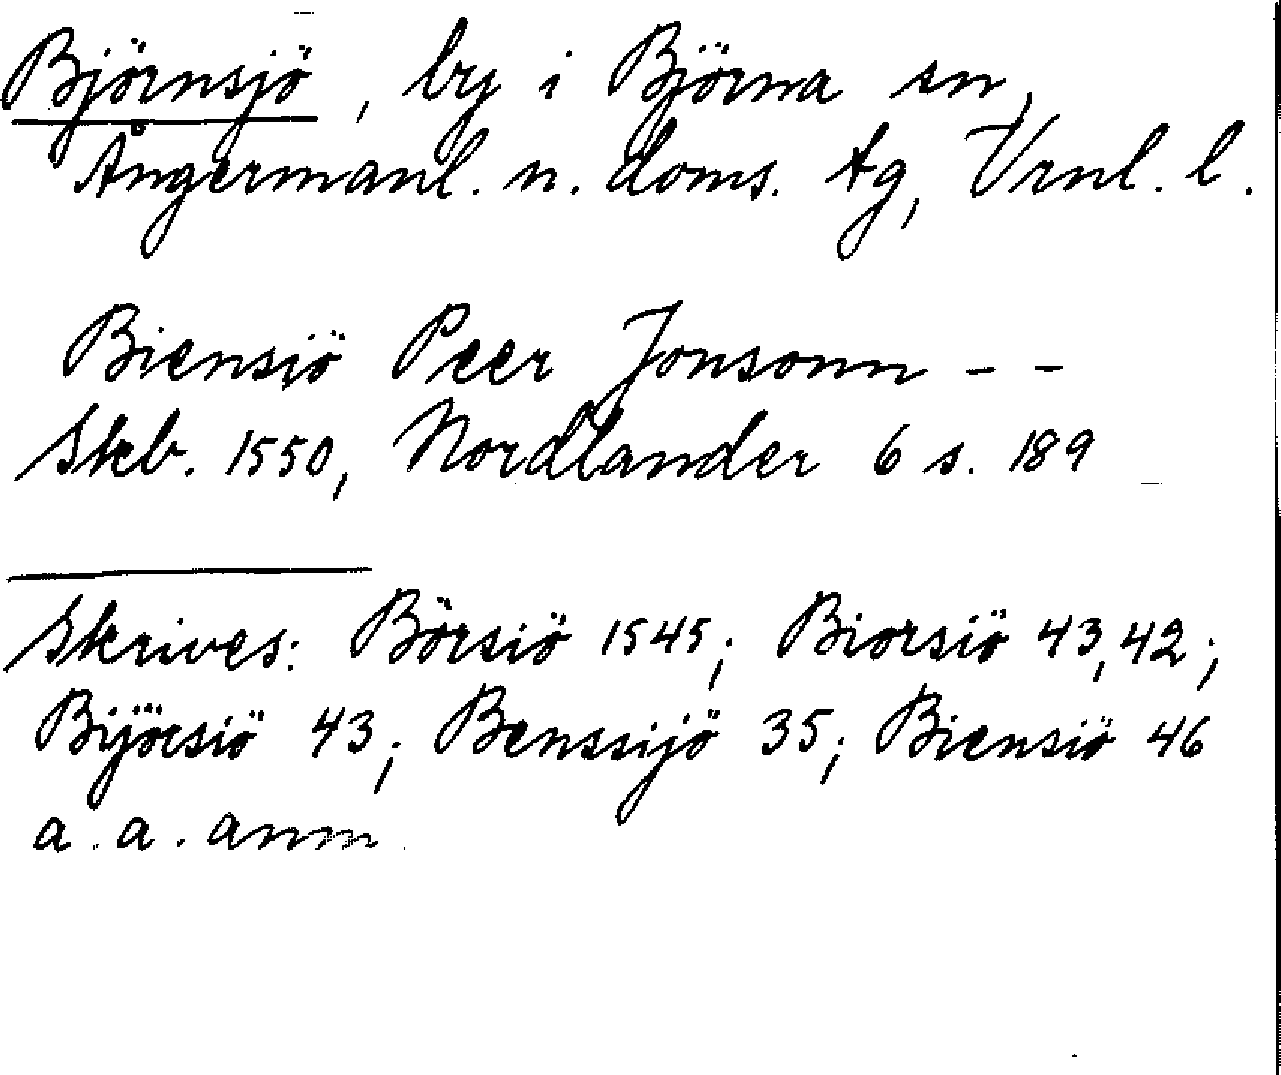 Björnsjö, by i Björna sn,
Ångermanl. n. doms. tg, Vrnl. l.
Biensiö Peer Jonsonn - -
Skb. 1550, Nordlander 6 s. 189
Skrives: Börsiö 1545; Biorsiö 43, 42;
Bijörsiö 43; Benssijö 35; Biensiö 46
a. a. anm.